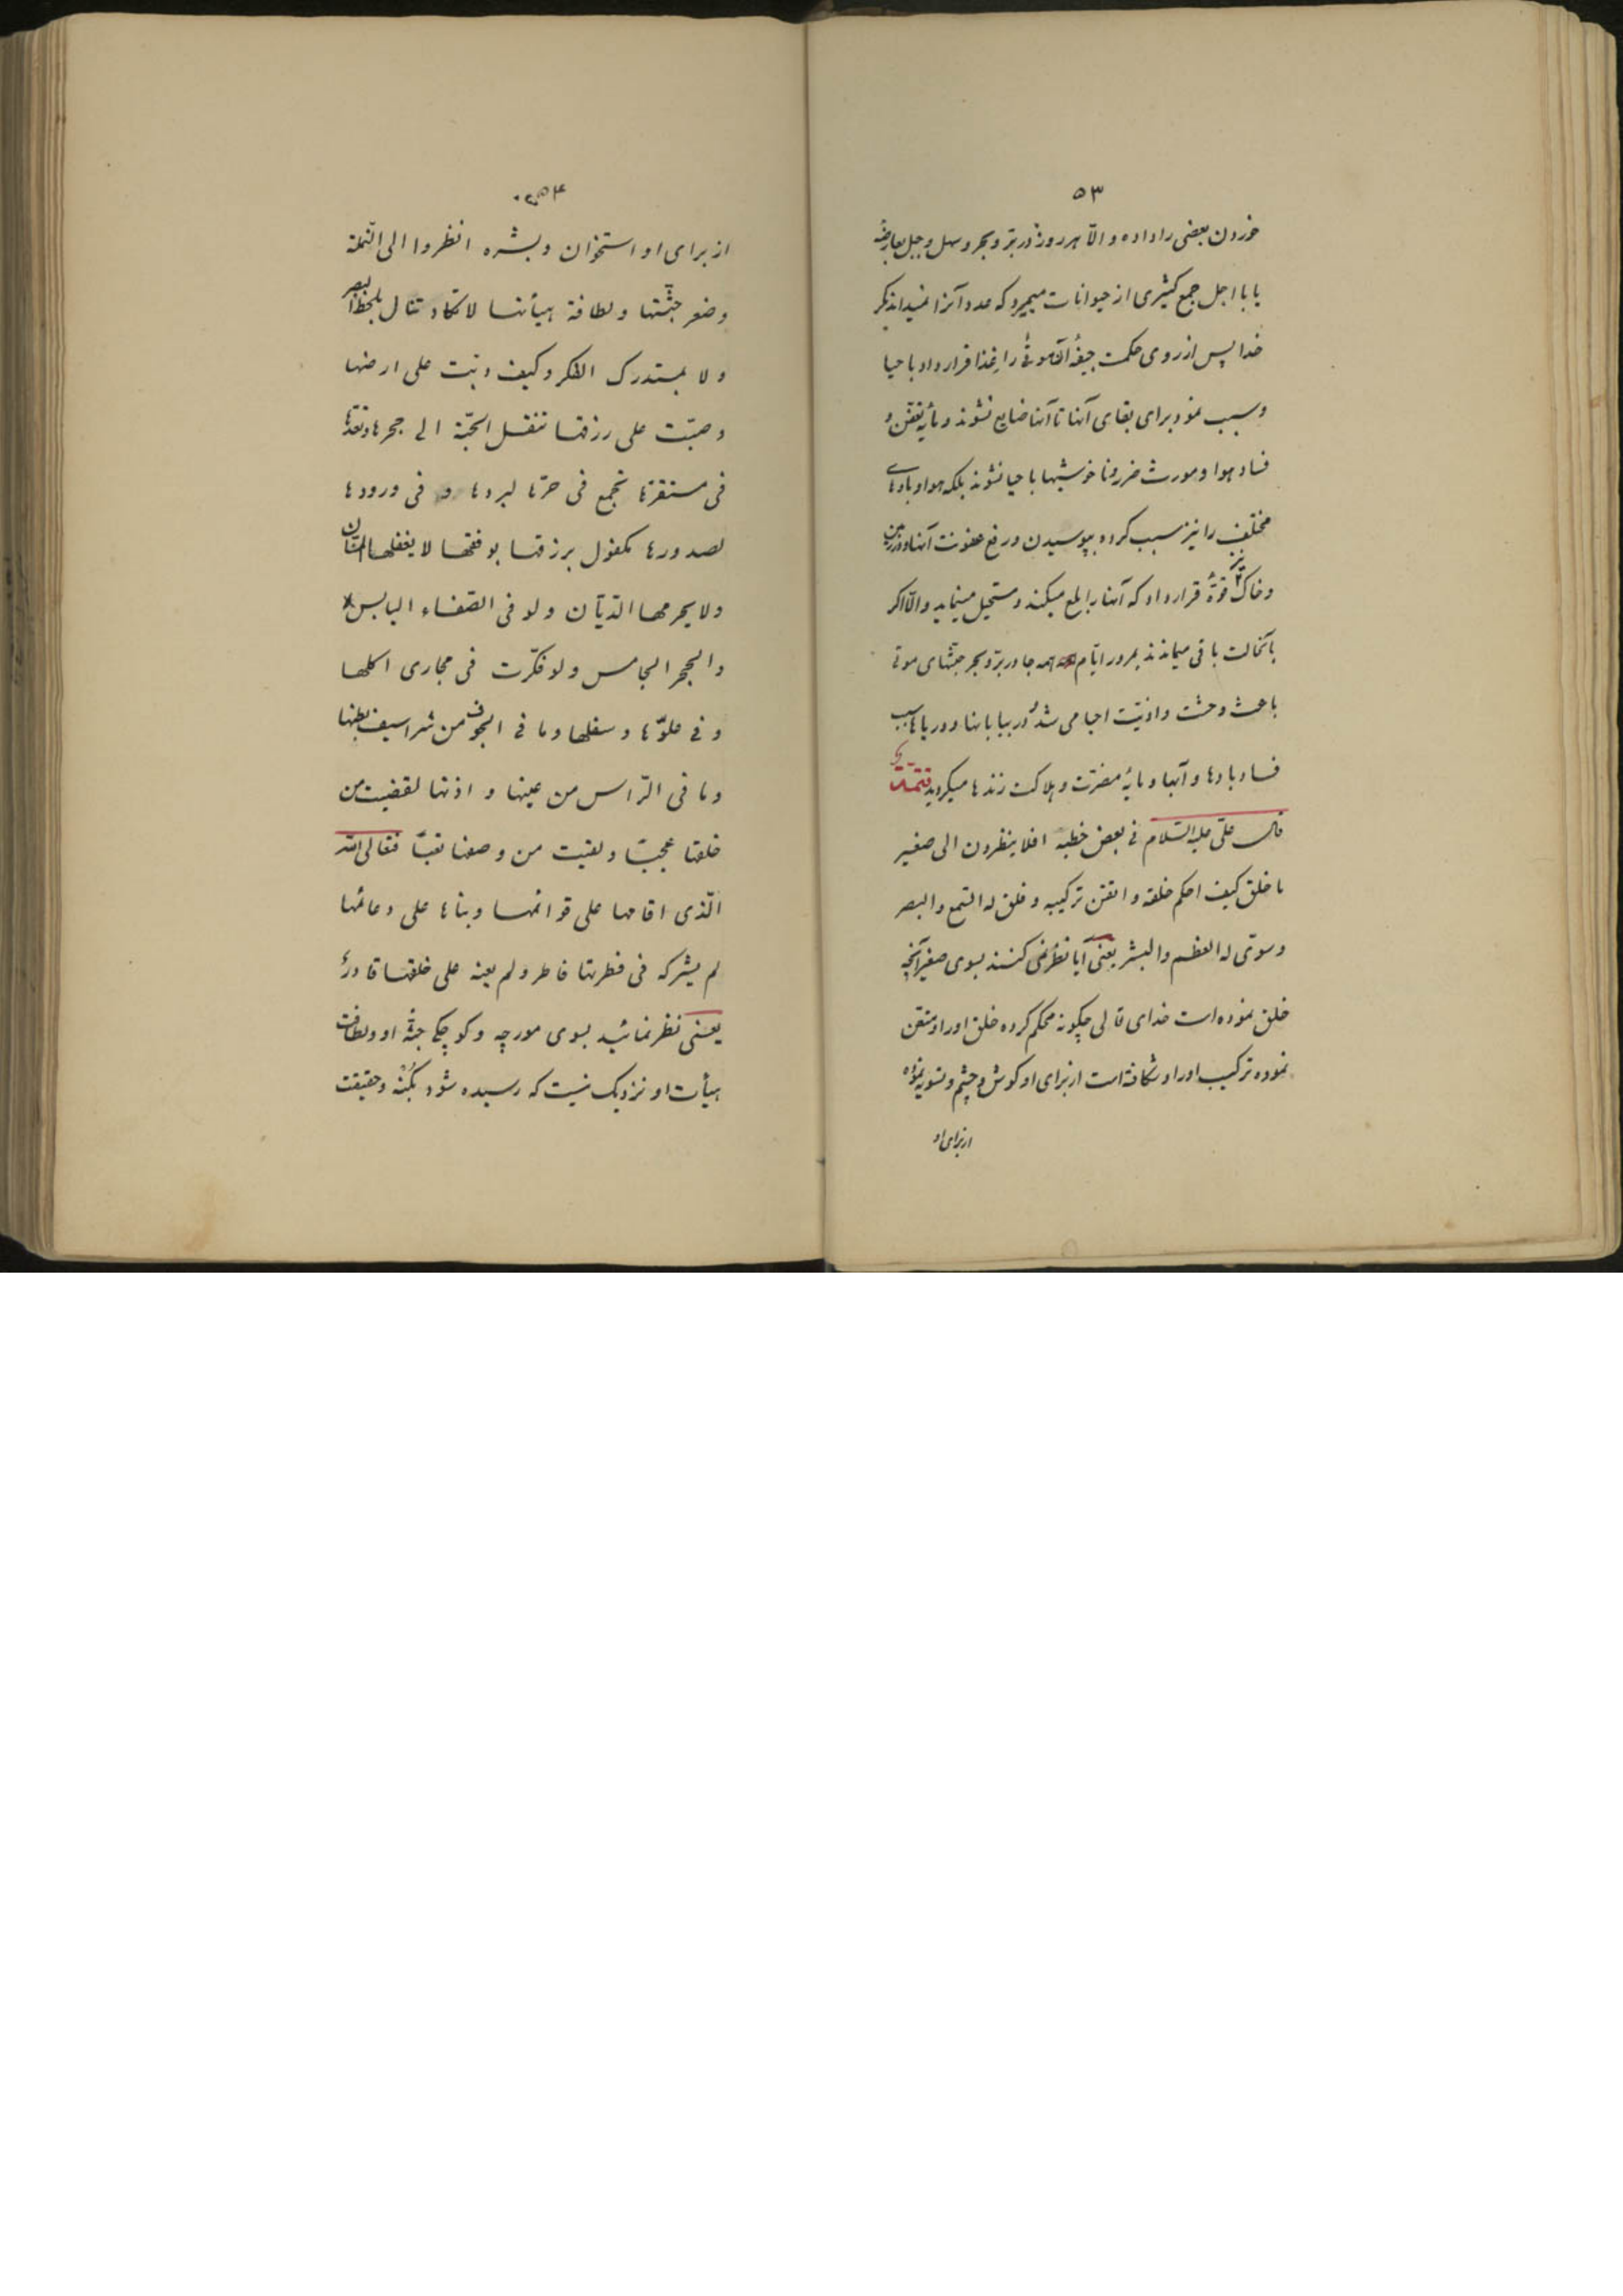 ۵۳
خوردن بعضی را داده و الّا هر روز در برّ و بحر و سهل و جبل بعارضهٔ
یا با اجل جمع کثیری از حیوانات میمیرد که عدد آنرا نمیداند مگر
خدا پس از روی حکمت جیفهٔ آن موتی را غذا قرار داد با حیا
و سبب نمود برای بقای آنها تا آنها ضایع نشوند و مایهٔ تعفّن و
فساد هوا و مورث ضرر و ناخوشیها باحیا نشوند بلکه هوا و بادهای
مختلف را نیز سبب کرده بپوسیدن و رفع عفونت آنها و در زمین
و خاک نیز قوّهٔ قرار داد که آنها را بلع میکند و مستحیل مینماید و الّا اکر
بآنحالت باقی میماندند بمرور ایّام همه جا در برّ و بحر جثّهای موتی
باعث وحشت و اذیّت احیا می شد و در بیابانها و دریاها سبب
فساد بادها و آبها و مایهٔ مضرّت و هلاکت زندها میکردید تتمّة
قال علی علیه السّلام فی بعض خطبه افلا ینظرون الی صغیر
ما خلق کیف احکم خلقه و اتقن ترکیبه و فلق له السّمع و البصر
و سوّی له العظم و البشر یعنی آیا نظر نمی کنند بسوی صغیر آنچه
خلق نموده است خدای تعالی چکونه محکم کرده خلق او را و متقن
نموده ترکیب او را و شکافته است از برای او کوش و چشم و تسویه نموده
از برای او
۵۴
از برای او استخوان و بشره انظروا الی النّملة
و صغر جثّتها و لطافة هیأتها لا تکاد تنال بلحظ البصر
و لا بمستدرک الفکر و کیف دبّت علی ارضها
و صبّت علی رزقها تنقل الحبّة الی جحرها و تعدّها
فی مستقرّها تجمع فی حرّها لبردها و فی ورودها
لصدورها مکفول برزقها بوفقها لا یغفلها المنّان
و لا یحرمها الدّیّان و لو فی الصّفاء الیابس
و الحجر الجامس و لو فکّرت فی مجاری اکلها
و فی علوّها و سفلها و ما فی الجوف من شراسیف بطنها
و ما فی الرّاس من عینها و اذنها لقضیت من
خلقها عجبًا و لقیت من وصفها تعبًا فتعالی الله
الّذی اقامها علی قوائمها و بناها علی دعائمها
لم یشرکه فی فطرتها فاطر و لم یعنه علی خلقها قادرٌ
یعنی نظر نمائید بسوی مورچه و کوچکی جثّهٔ او و لطافت
هیأت او نزدیک نیست که رسیده شود بکُنه و حقیقت